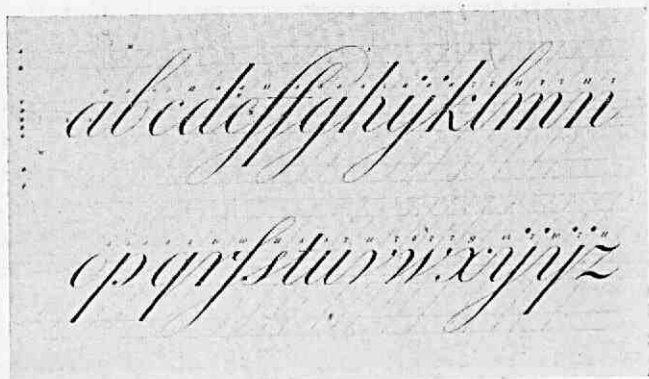 abcdeffghijklmn
opqrſstuvwxÿÿz